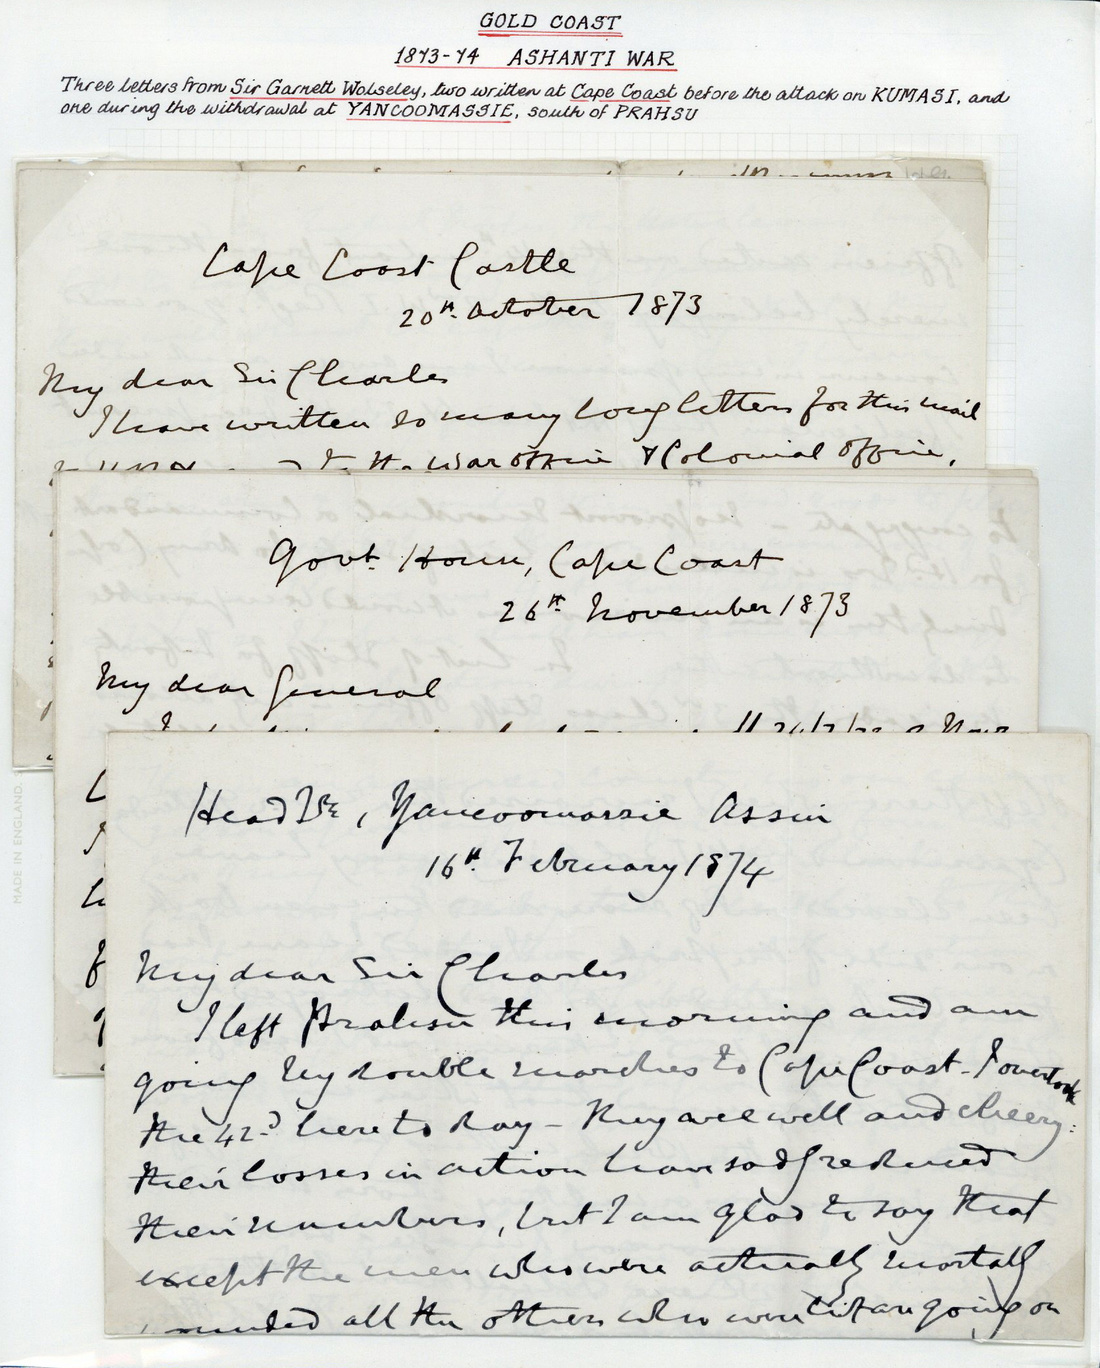 GOLD COAST
1873-74 ASHANTI WAR
Three letters from Sir Garnett Wolseley, two written at Cape Coast before the attack on KUMASI, and
one during the withdrawal at YANCOOMASSIE, south of PRAHSU
Cape Coast Castle
20th October 1873
My dear Sir Charles
I have written so many long letters for this mail
War Office & Colonial Office,
Govt. House, Cape Coast
26th November 1873
My dear General
Head Qrs, Yancoomassie Assin
16th February 1874
My dear Sir Charles
I left Prahsu this morning and am
going by double marches to Cape Coast - I overtook
the 42d here to day - They are well and cheery:
their losses in action have sadly reduced
their numbers, but I am glad to say that
except the men who were actually mortally
wounded all the others who were hit are going on
MADE IN ENGLAND.